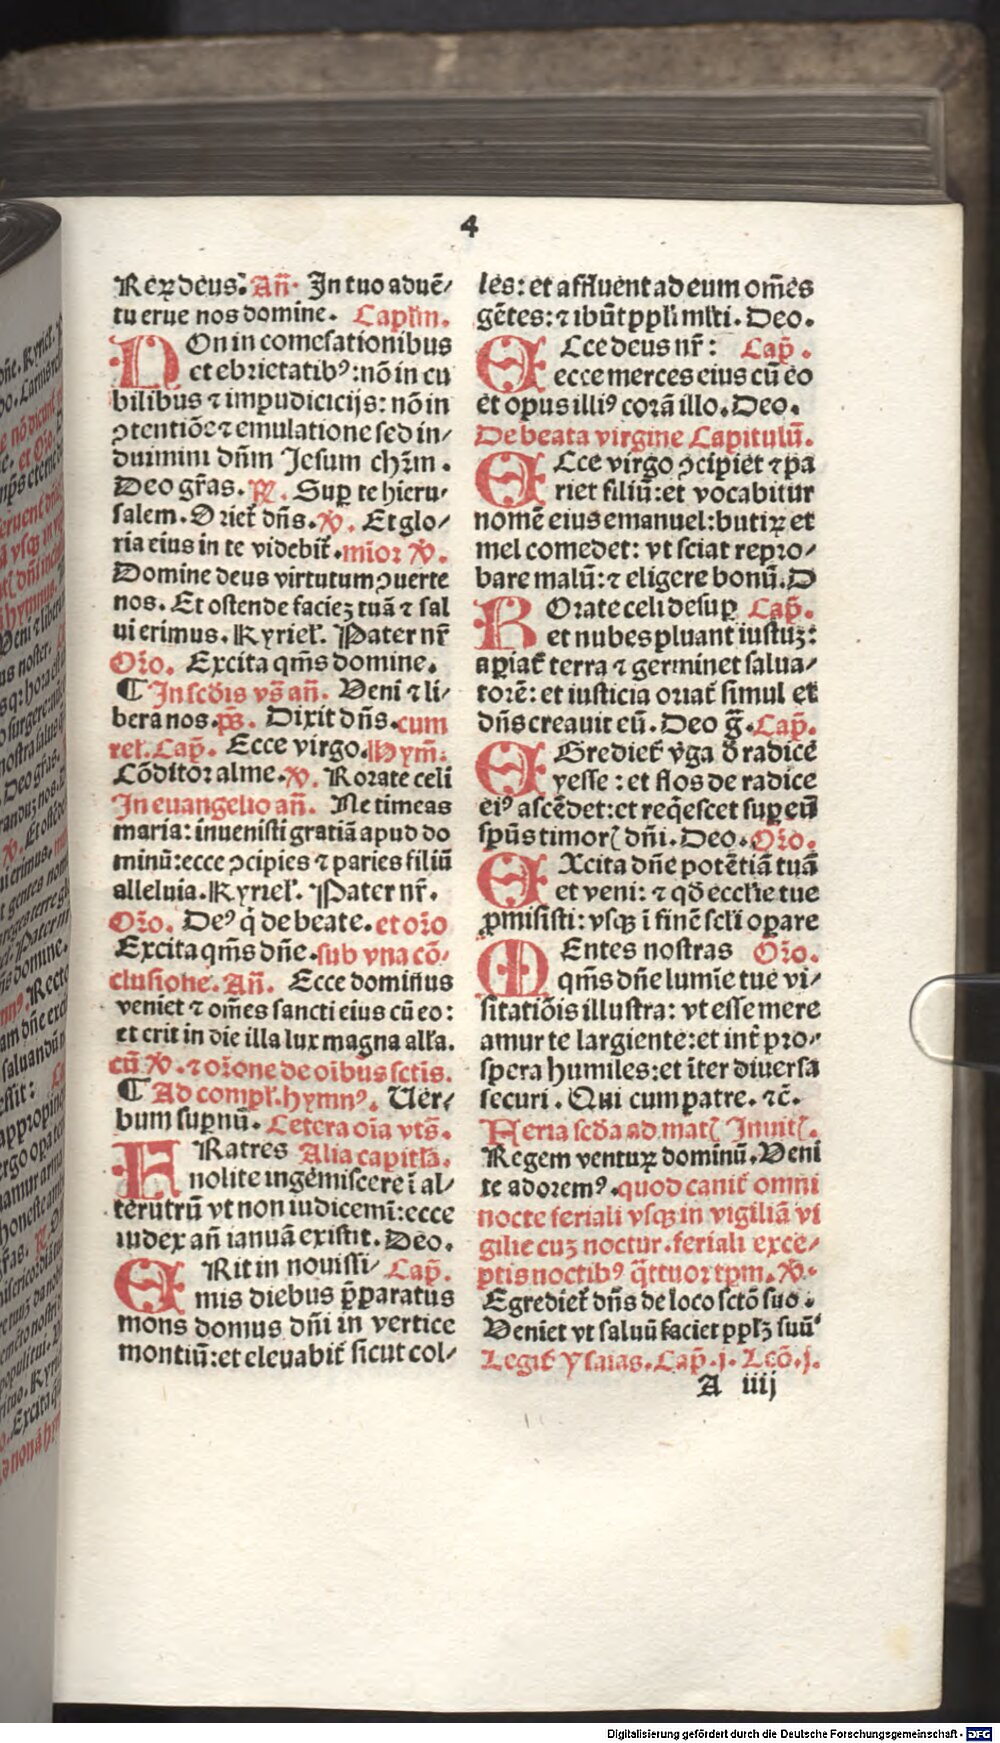 4
Rex deus. Añ. In tuo aduē⸗
tu erue nos domine. Caplʼm.
NOn in comesationibus
et ebrietatibꝰ: nō in cu
bilibus ⁊ impudicicijs: nō in
ꝯtentiōe ⁊ emulatione sed in⸗
duimini dn̄m Jesum chr̄m.
Deo gr̄as. ℟. Sup̱ te hieru⸗
salem. Oriet̄ dn̄s. ℣. Et glo⸗
ria eius in te videbit̄. mīor ℣.
Domine deus virtutum ꝯuerte
nos. Et ostende faciēꝫ tuā ⁊ sal
ui erimus. Kyrieł. Pater nr̄
Or̄o. Excita qm̄s domine.
¶ In scd̄is vs̄ añ. Veni ⁊ li⸗
bera nos. ps̄. Dixit dn̄s. cum
rel. Cap̄. Ecce virgo. Hym̄.
Cōditor alme. ℣. Rorate celi
In euangelio añ. Ne timeas
maria: inuenisti gratiā apud do
minū: ecce ꝯcipies ⁊ paries filiū
alleluia. Kyrieł. Pater nr̄.
Or̄o. Deꝰ q̇ de beate. et or̄o
Excita qm̄s dn̄e. sub vna cō⸗
clusione. Añ. Ecce domin̄us
veniet ⁊ om̄es sancti eius cū eo:
et erit in die illa lux magna all̄a.
cū ℣. ⁊ or̄one de oībus sctīs.
¶ Ad compł. hymnꝰ. Uer⸗
bum sup̱nū. Cetera oīa vts̄.
FRatres Alia capitl̄a.
nolite ingemiscere ī al⸗
terutrū vt non iudicemī: ecce
iudex añ ianuā existit. Deo.
ERit in nouissi⸗ Cap̄.
mis diebus p̄paratus
mons domus dn̄i in vertice
montiū: et eleuabit̄ sicut col⸗
les: et affluent ad eum om̄es
gētes: ⁊ ibūt pp̱lʼi ml̄ti. Deo.
ECce deus nr̄: Cap̄.
ecce merces eius cū eo
et opus illiꝰ corā illo. Deo.
De beata virgine Capitulū.
ECce virgo ꝯcipiet ⁊ pa
riet filiū: et vocabitur
nomē eius emanuel: butiꝝ et
mel comedet: vt sciat repro⸗
bare malū: ⁊ eligere bonū. D
ROrate celi desup̱ Cap̄.
et nubes pluant iustuꝫ:
ap̱iat̄ terra ⁊ germinet salua⸗
torē: et iusticia oriat̄ simul et
dn̄s creauit eū. Deo g̃. Cap̄.
EGrediet̄ v̓ga d̄ radice
yesse: et flos de radice
eiꝰ ascēdet: et req̇escet sup̱ eū
spūs timorꝭ dn̄i. Deo. Or̄o.
EXcita dn̄e potētiā tuā
et veni: ⁊ qd̄ ecclʼie tue
ꝓmisisti: vsqꝫ ī finē sclʼi op̱are
MEntes nostras Or̄o.
qm̄s dn̄e lumīe tue vi⸗
sitatiōis illustra: vt esse mere
amur te largiente: et int̓ pro⸗
spera humiles: et īter diuersa
securi. Qui cum patre. ⁊c̄.
Feria scd̄a ad matꝭ Inuitꝭ.
Regem ventuꝝ dominū. Veni
te adoremꝰ. quod canit̄ omni
nocte feriali vsqꝫ in vigiliā vi
gilie cuꝫ noctur. feriali exce⸗
ptis noctibꝰ q̄ttuor tp̄m. ℣.
Egrediet̄ dn̄s de loco sctō suo.
Veniet vt saluū faciet pplʼꝫ suū
Legit̄ Ysaias. Cap̄. j. Lcō. j.
A iiij
Digitalisierung gefördert durch die Deutsche Forschungsgemeinschaft - DFG